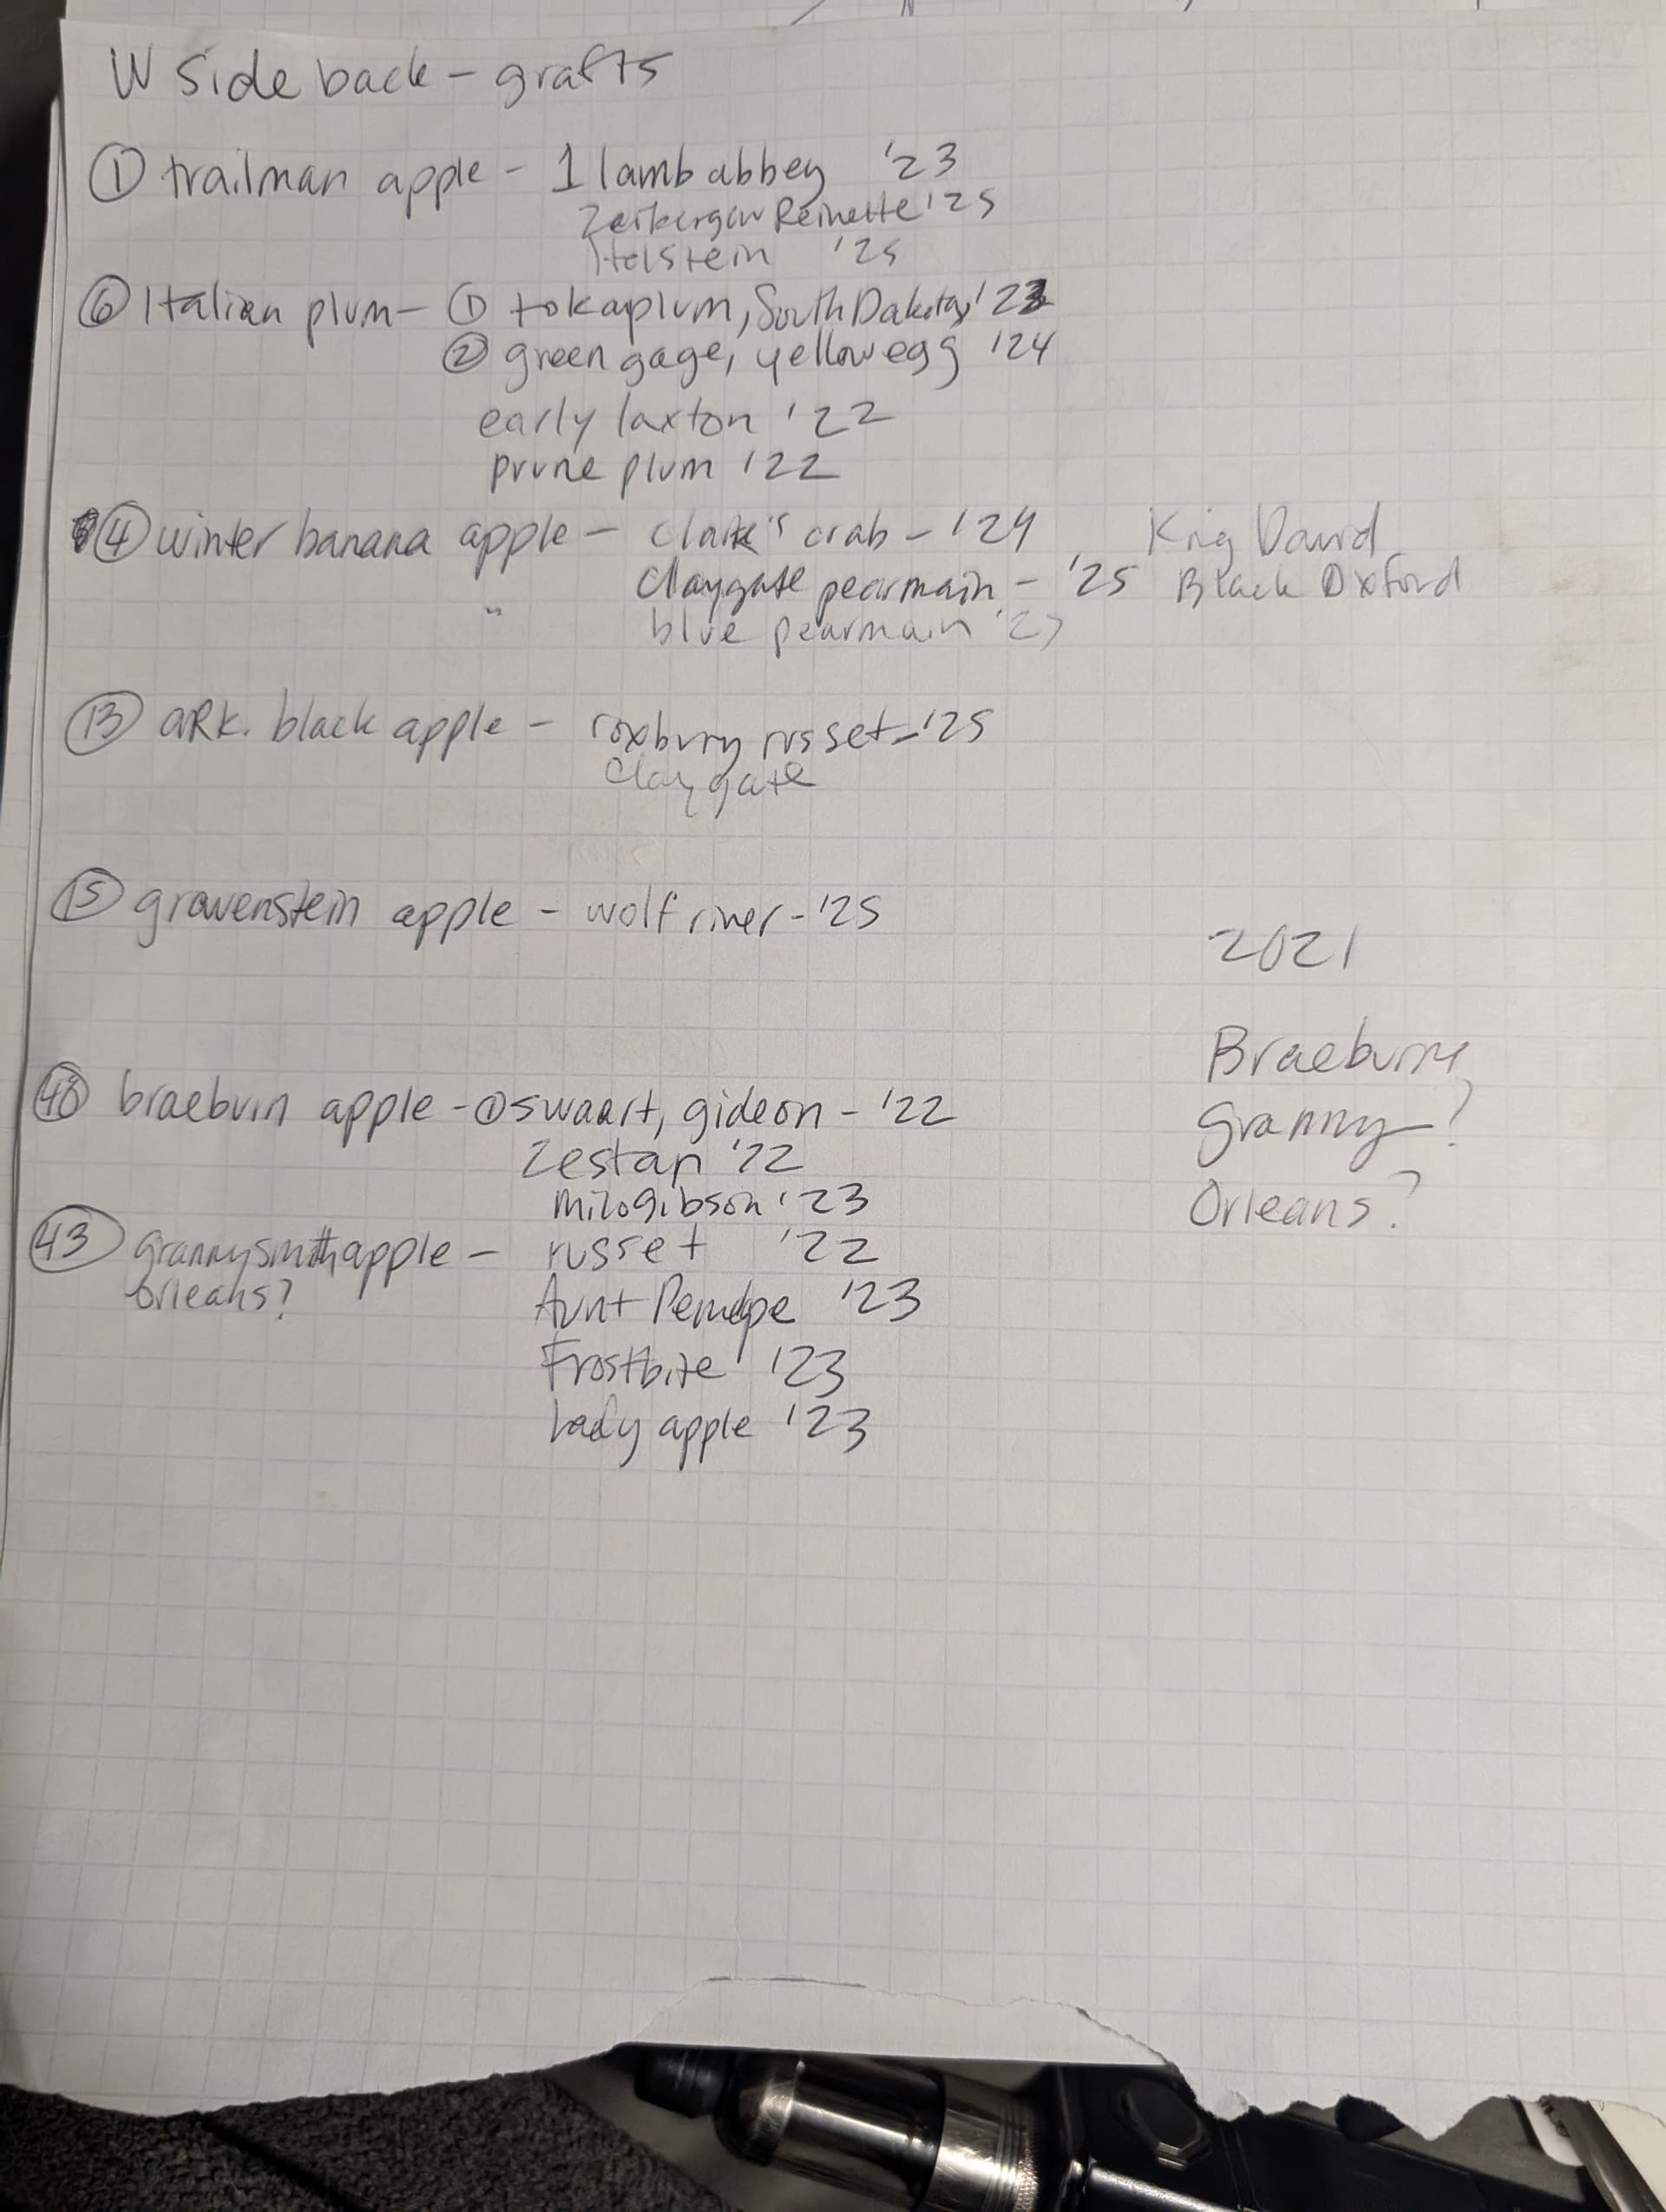 W Side back - grafts
① trailman apple - 1 lamb abbey '23
Zerbergow Reinette '25
Holstein '25
⑥ Italian plum - ① toka plum, South Dakota, '23
② green gage, yellow egg '24
early laxton '22
prune plum '22
④ winter banana apple - clark's crab - '24 King David
claygate pearmain - '25 Black Oxford
" blue pearmain '25
⑬ ARK. black apple - roxbury russet - '25
claygate
⑮ gravenstein apple - wolf river - '25
2021
Braeburn,
granny?
Orleans?
㊵ braeburn apple - ① swaart, gideon - '22
Zestar '22
milo gibson '23
㊸ granny smith apple - russet '22
orleans?
Aunt Penelope '23
Frostbite '23
Lady apple '23